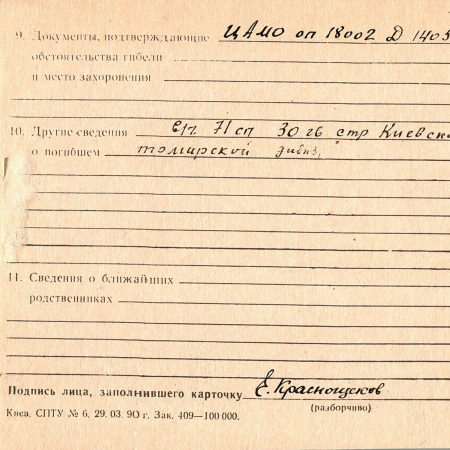 9. Документы, подтверждающие ЦАМО оп 18002 Д 1405
обстоятельства гибели
и место захоронения
10. Другие сведения с/г 71 сп 30 гв стр Киевск
о погибшем томирской дивиз,
11. Сведения о ближайших
родственниках
Подпись лица, заполнившего карточку Е. Краснощеков
(разборчиво)
Киев, СПТУ № 6, 29. 03. 90 г. Зак. 409—100 000.